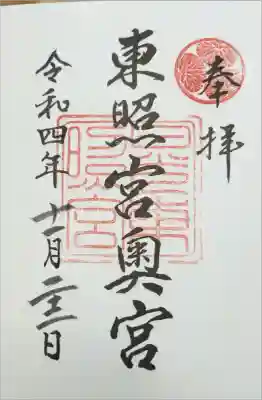 奉拝
東照宮奥宮
令和四年十一月二三日